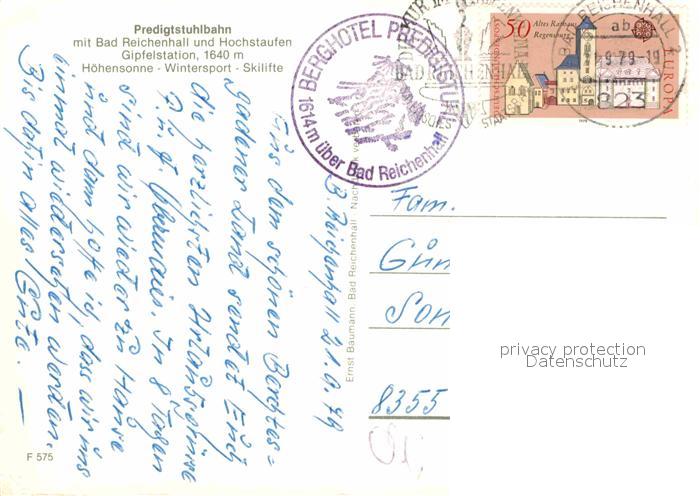 Predigtstuhlbahn
mit Bad Reichenhall und Hochstaufen
Gipfelstation, 1640 m
Höhensonne - Wintersport - Skilifte
BERGHOTEL PREDIGTSTUHL
1614 m über Bad Reichenhall
50 Altes Rathaus
Regensburg
EUROPA
BAD REICHENHALL 2
ab
9.79-19
823
B. Reichenhall 21.9.79
Aus dem schönen Berchtes=
gadener Land sendet Euch
die herzlichsten Urlaubsgrüsse
In 8 Tagen
sind wir wieder zu Hause
und dann hoffe ich, dass wir uns
einmal wiedersehen werden.
Bis dahin alles Gute.
Ernst Baumann, Bad Reichenhall
Fam.
Gün
Son
8355
privacy protection
Datenschutz
F 575